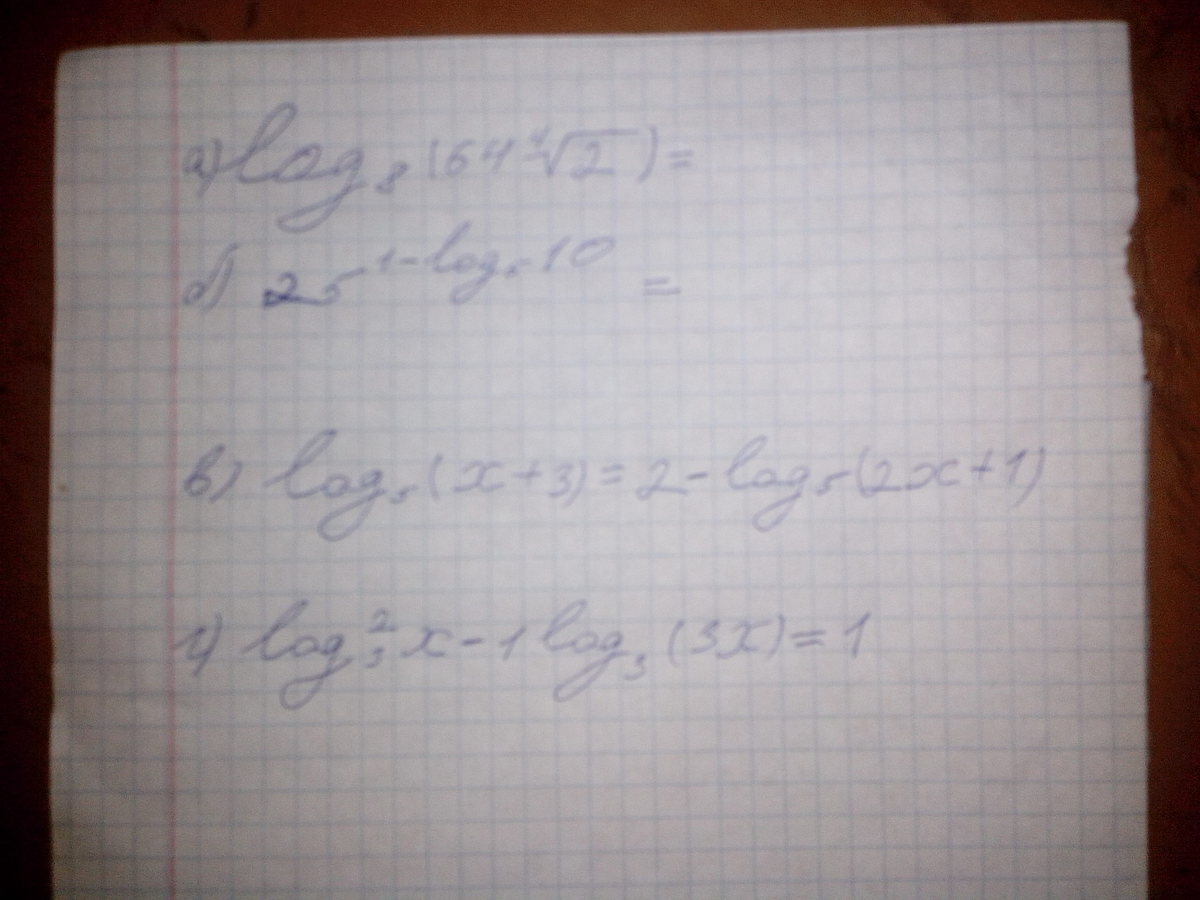 а) log₈(64 ⁴√2) =
б) 25^(1-log₅10) =
в) log₅(x+3) = 2 - log₅(2x+1)
г) log₃²x - 1 log₃(3x) = 1